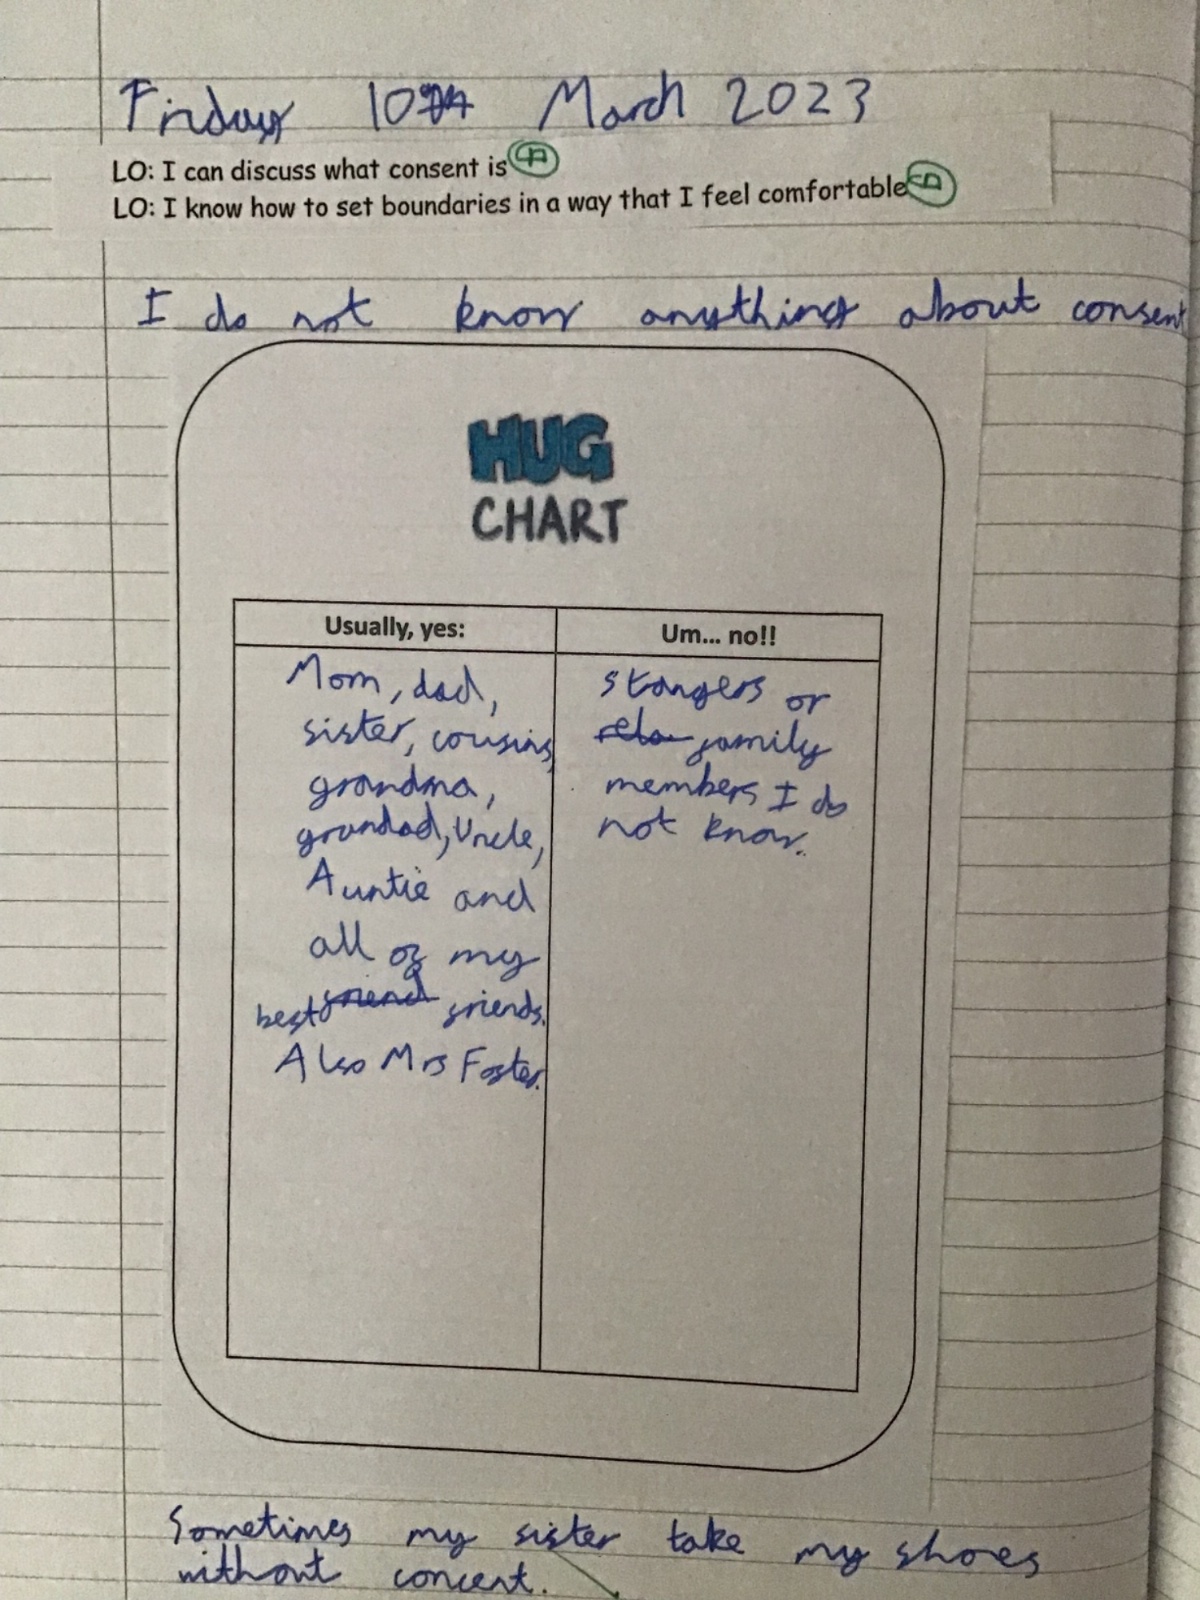 Friday 10th March 2023
LO: I can discuss what consent is
LO: I know how to set boundaries in a way that I feel comfortable
I do not know anything about consent
HUG
CHART
Usually, yes:
Mom, dad,
sister, cousins,
grandma,
grandad, Uncle,
Auntie and
all of my
best friend friends.
Also Mrs Foster.
Um... no!!
strangers or
rela family
members I do
not know.
Sometimes my sister take my shoes
without concent.